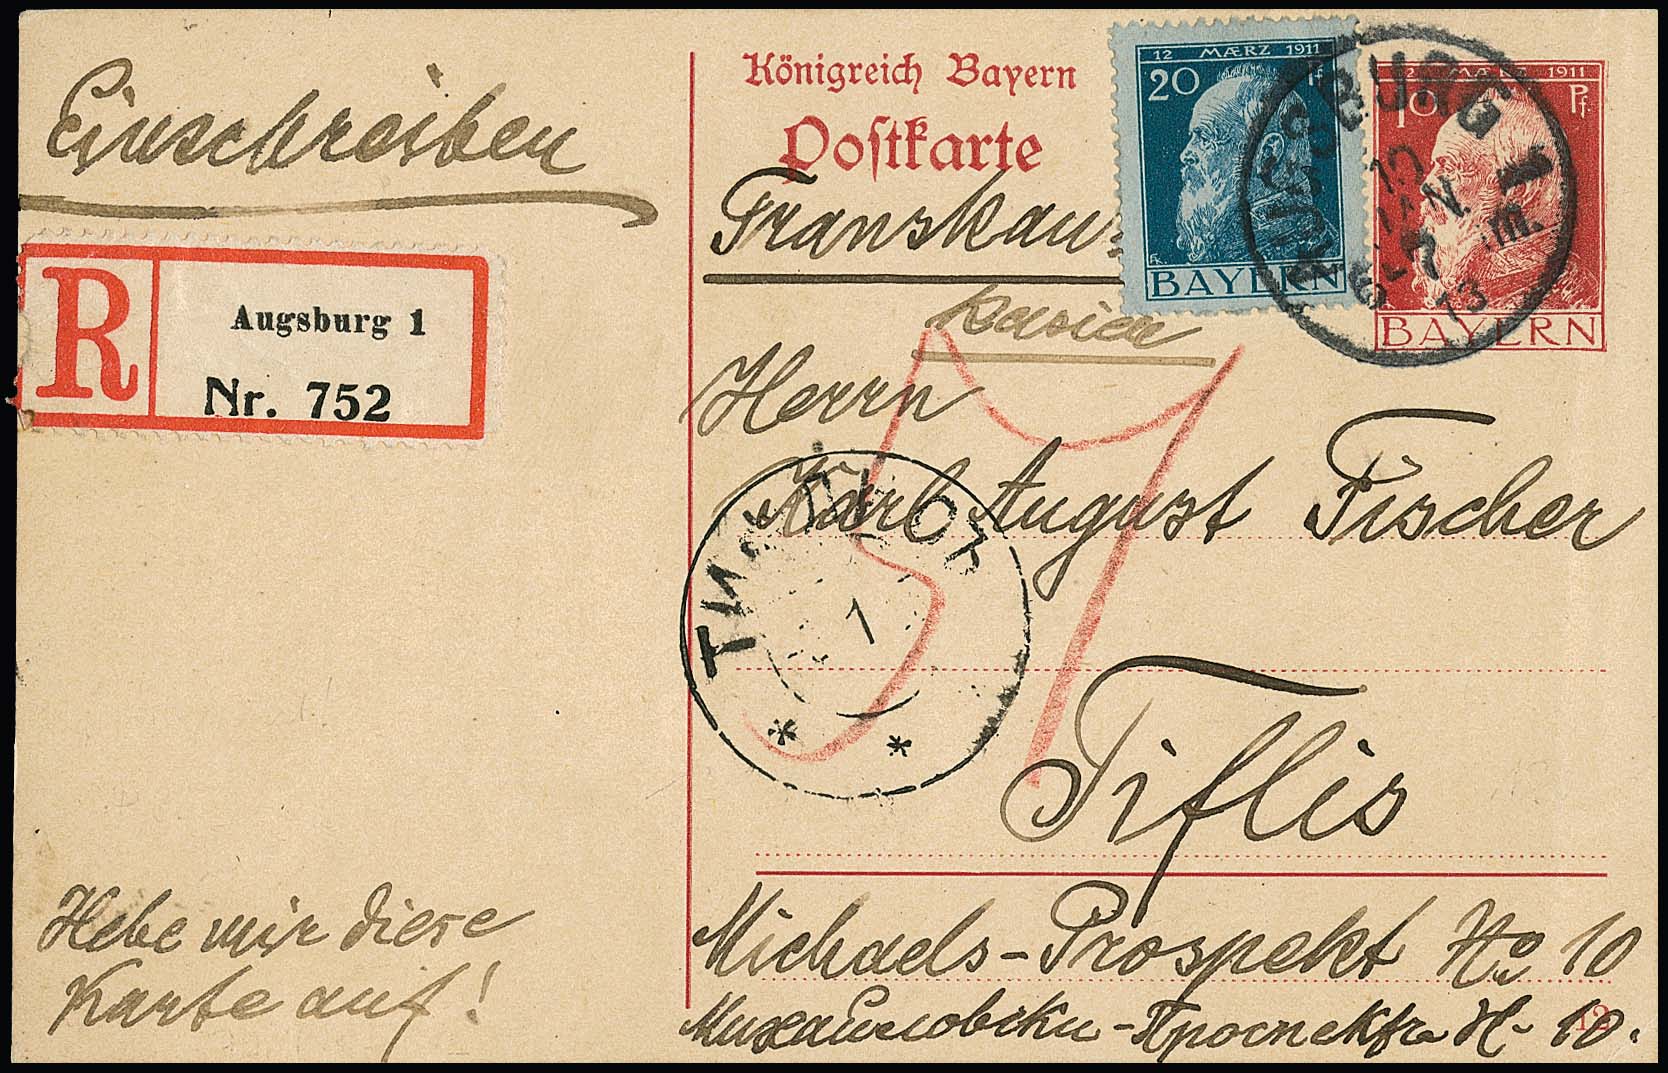 Einschreiben
R
Augsburg 1
Nr. 752
Königreich Bayern
Postkarte
12 MÆRZ 1911
20 Pf
BAYERN
12 MÆRZ 1911
10 Pf.
BAYERN
AUGSBURG 1
10
JAN.
13
Transkau-
kasien
Herrn
Karl August Fischer
1
Tiflis
Michaels-Prospekt No 10
Михаиловски-Проспектъ Н- 10.
12
Hebe mir diese
Karte auf!